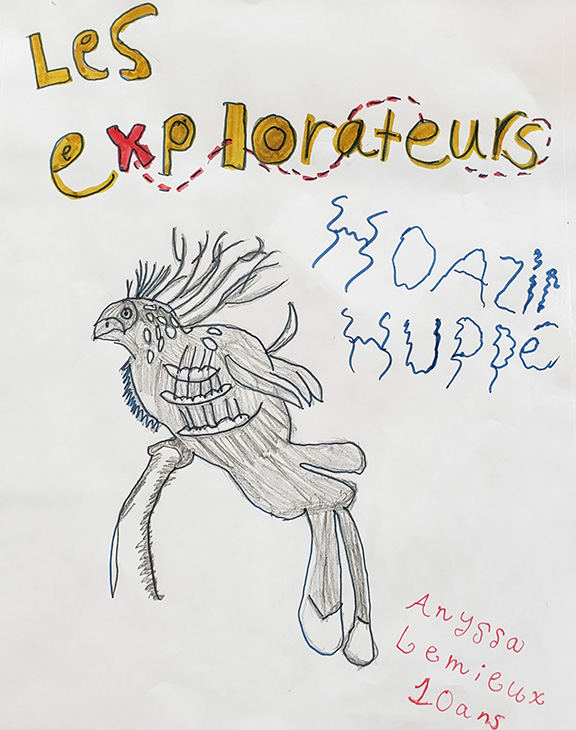 Les
explorateurs
HOAZIN
HUPPÉ
Anyssa
Lemieux
10 ans